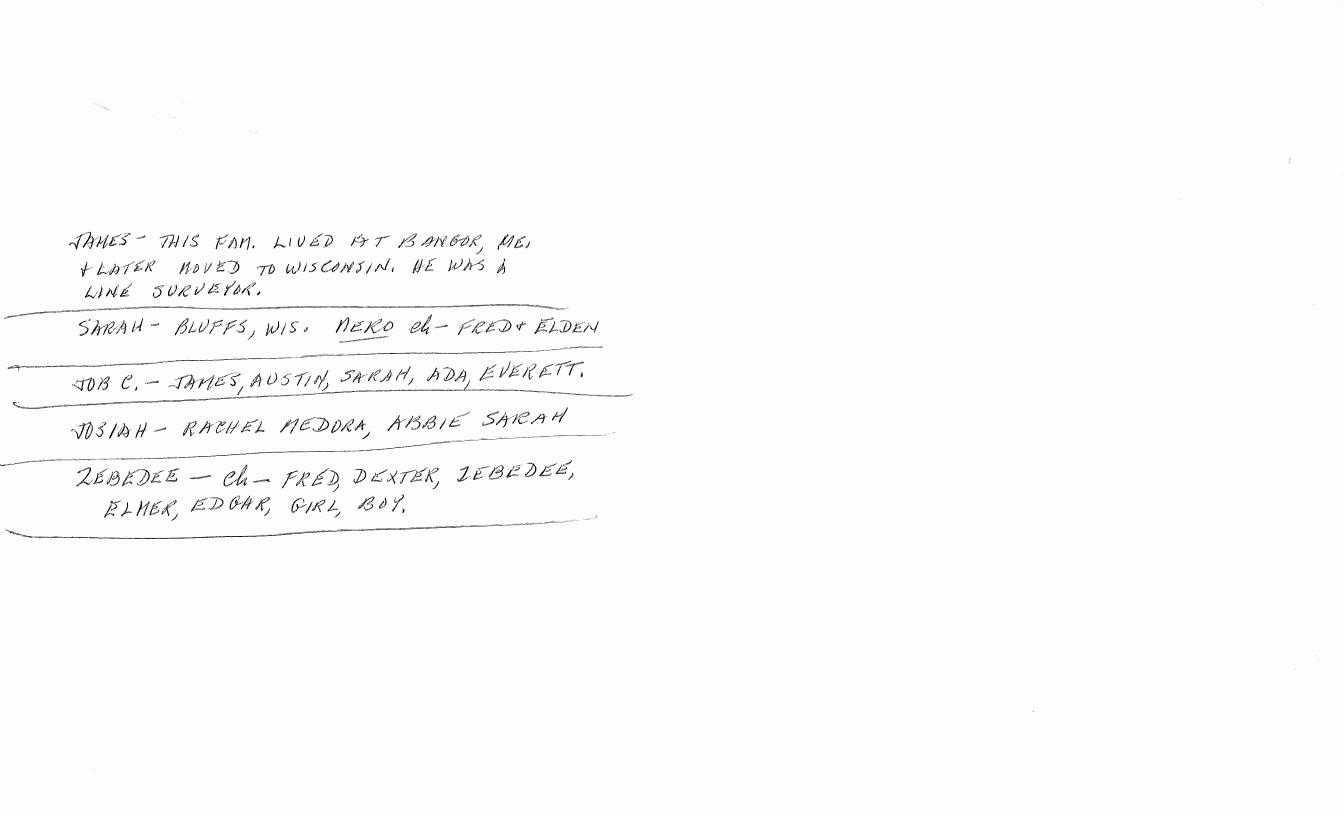 JAMES - THIS FAM. LIVED AT BANGOR, ME,
& LATER MOVED TO WISCONSIN. HE WAS A
LINE SURVEYOR.
SARAH - BLUFFS, WIS. NERO ch - FRED & ELDEN
JOB C. - JAMES, AUSTIN, SARAH, ADA, EVERETT.
JOSIAH - RACHEL MEDORA, ABBIE SARAH
ZEBEDEE - ch - FRED, DEXTER, ZEBEDEE,
ELMER, EDGAR, GIRL, BOY.